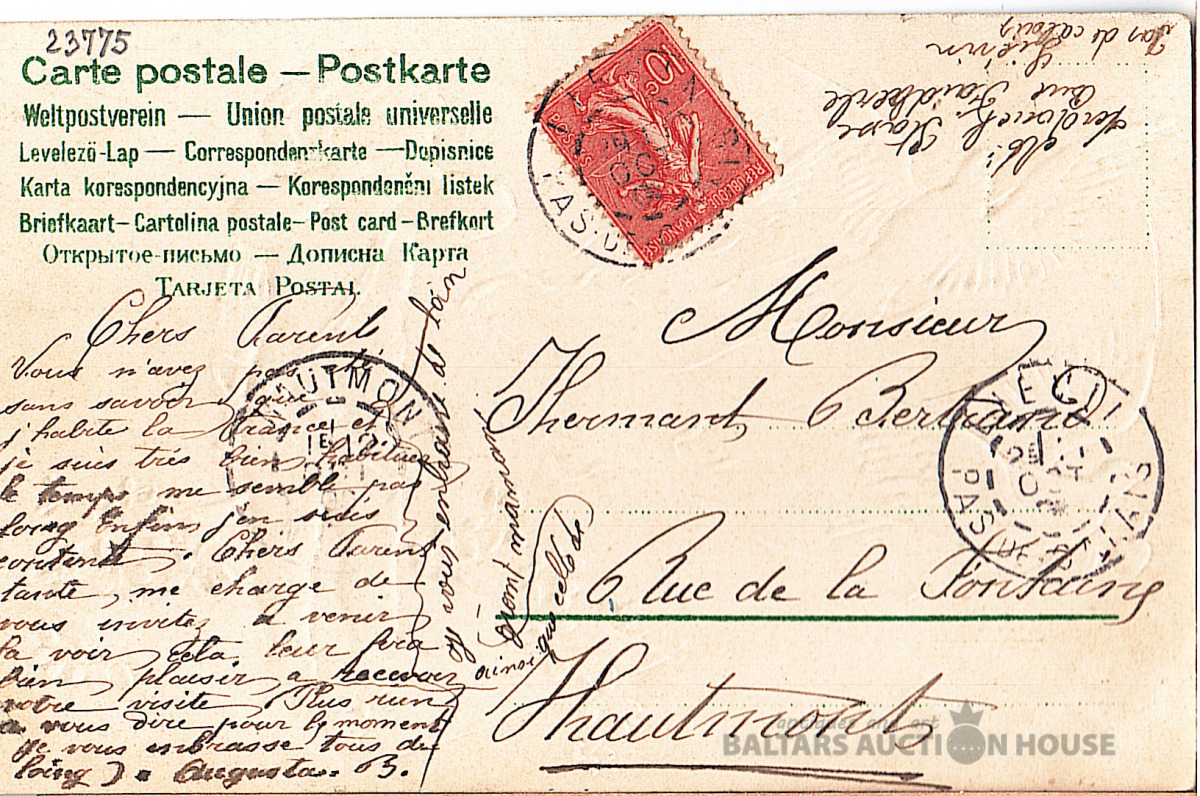 23775
Carte postale — Postkarte
Weltpostverein — Union postale universelle
Levelező-Lap — Correspondenzkarte — Dopisnice
Karta korespondencyjna — Korespondenční listek
Briefkaart — Cartolina postale — Post card — Brefkort
Открытое-письмо — Дописна Карта
TARJETA POSTAL
Chers Parent
Vous n'avez pas
sans savoir que
j'habite la France et
je suis très bien habituer
le temps me semble pas
long Enfin j'en suis
contente. Chers Parent
tante, me charge de
vous invitez a venir
la voir cela leur fera
bien plaisir a recevoir
votre visite Plus rien
a vous dire pour le moment
Je vous embrasse tous de
loing). Augusta. B.
de loin
maman
ainsi que celle de
10
POSTES
HAUTMONT
LIEVIN
PAS-DE-CALAIS
Rue Faidherbe
Liévin
Pas de calais
Monsieur
Thermant Bertrand
Rue de la Fontaine
Hautmont
antiques and art
BALTARS AUCTION HOUSE